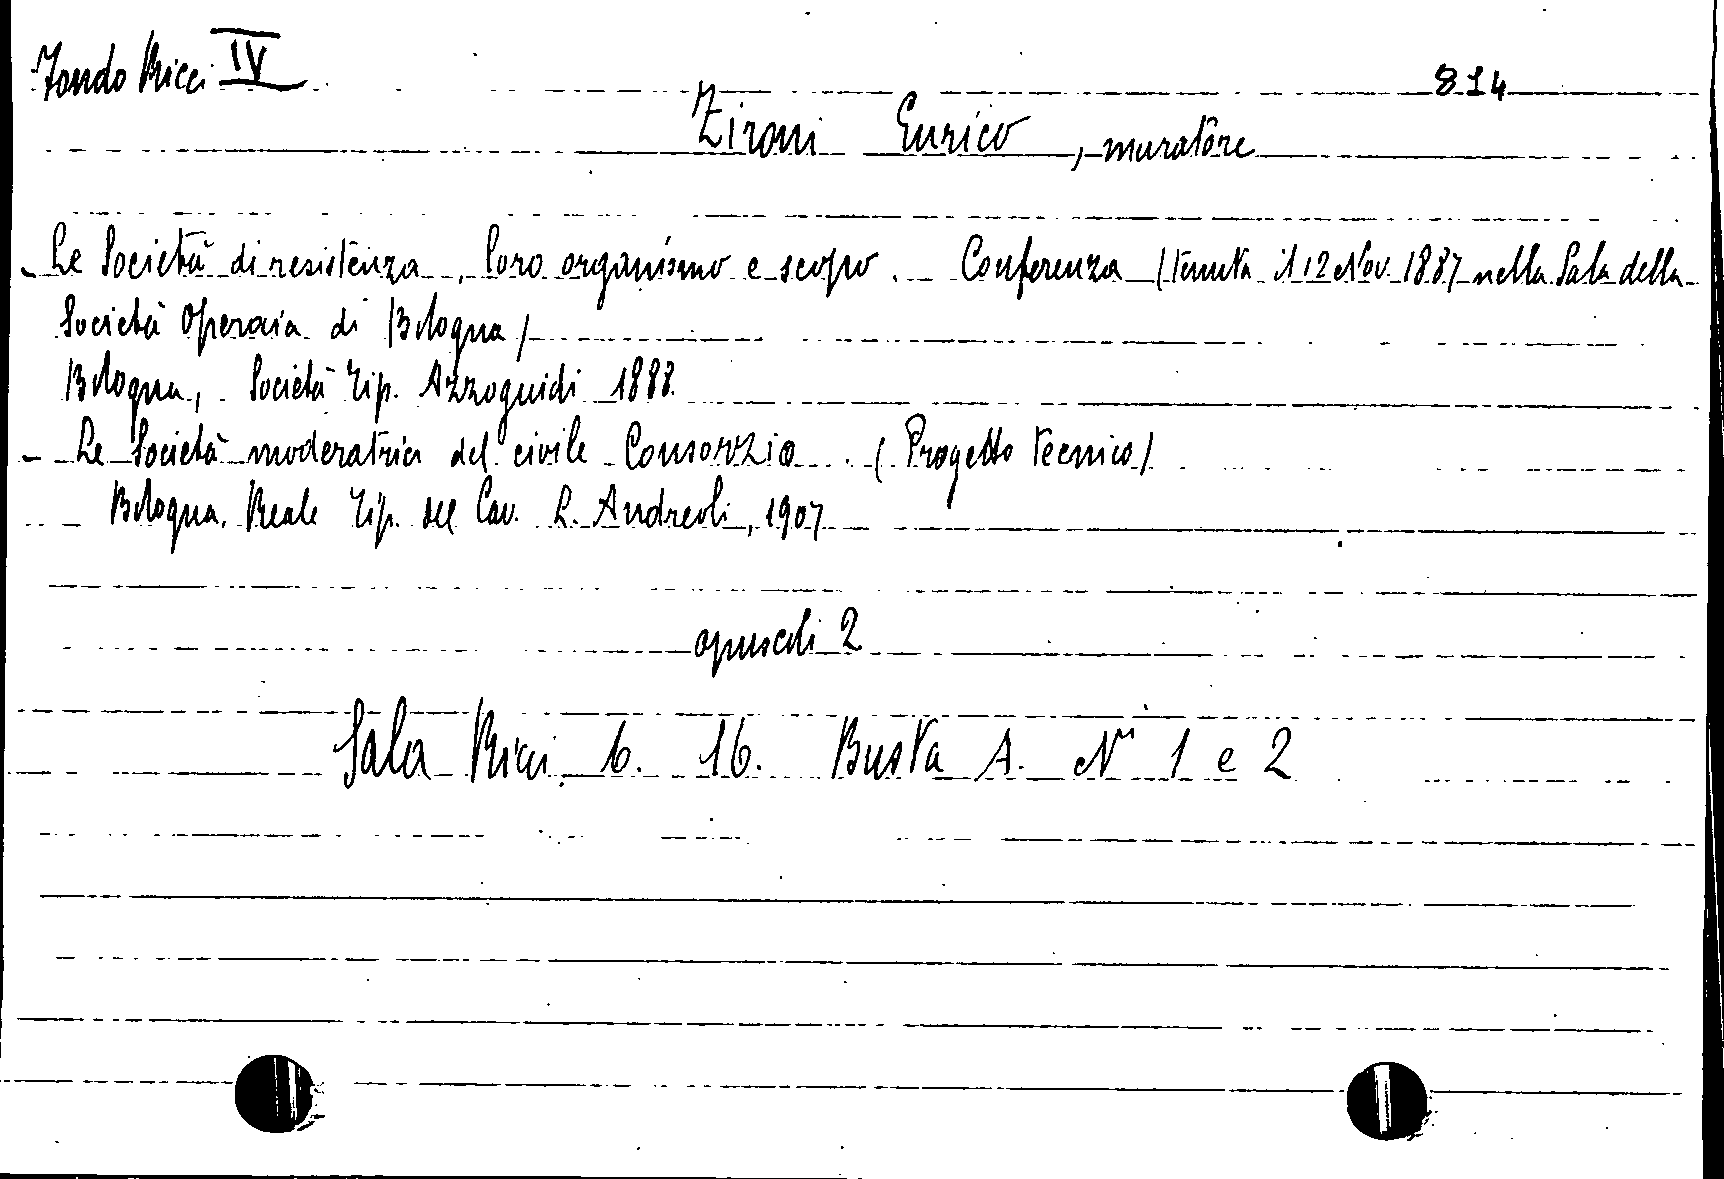 Fondo Ricci IV
814
Zironi Enrico, muratore
- Le Società di resistenza, loro organismo e scopo. - Conferenza (tenuta il 12 Nov. 1887 nella Sala della
Società Operaia di Bologna)
Bologna, Società Tip. Azzoguidi 1888.
- Le Società moderatrici del civile Consorzio. (Progetto tecnico)
Bologna. Reale Tip. del Cav. L. Andreoli, 1907
opuscoli 2
Sala Ricci 6. 16. Busta A. N. 1 e 2